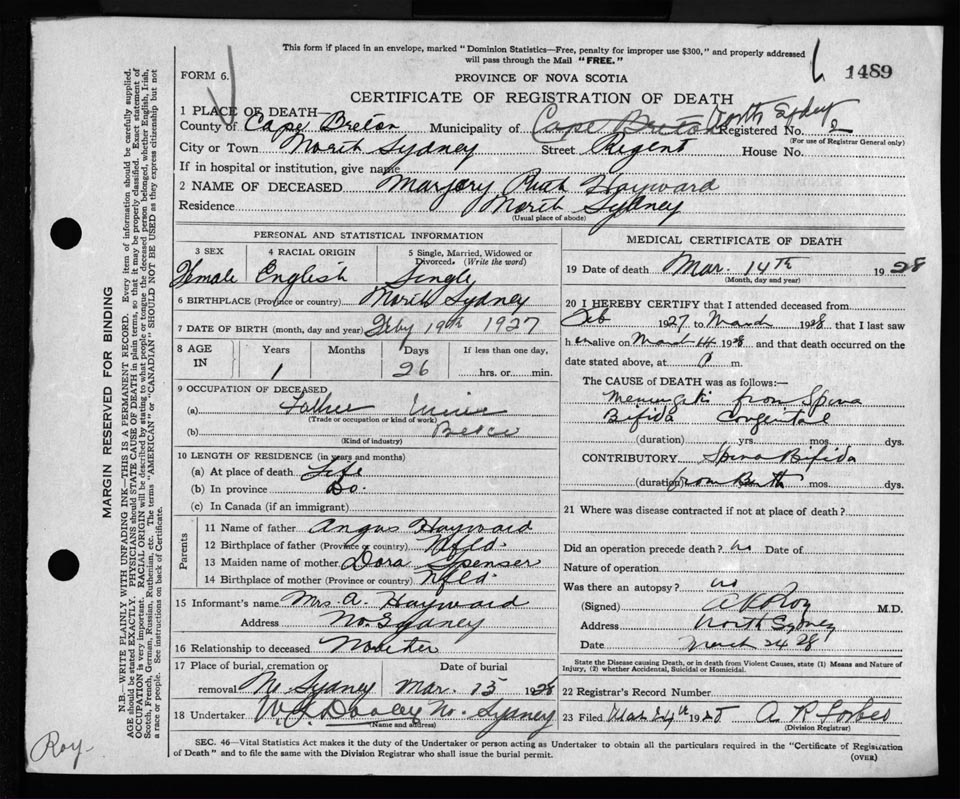 This form if placed in an envelope, marked "Dominion Statistics—Free, penalty for improper use $300," and properly addressed
will pass through the Mail "FREE."
FORM 6. PROVINCE OF NOVA SCOTIA 1489
CERTIFICATE OF REGISTRATION OF DEATH
1 PLACE OF DEATH North Sydney
County of Cape Breton Municipality of Cape Breton Registered No. 2
(For use of Registrar General only)
City or Town North Sydney Street Regent House No.
If in hospital or institution, give name
2 NAME OF DECEASED Marjory Ruth Hayward
Residence North Sydney
(Usual place of abode)
PERSONAL AND STATISTICAL INFORMATION
3 SEX 4 RACIAL ORIGIN 5 Single, Married, Widowed or Divorced. (Write the word)
Female English Single
6 BIRTHPLACE (Province or country) North Sydney
7 DATE OF BIRTH (month, day and year) Feby 19th 1927
8 AGE IN Years Months Days If less than one day,
1 26 hrs. or min.
9 OCCUPATION OF DECEASED
(a) Father Miner
(Trade or occupation or kind of work)
(b) Besco
(Kind of industry)
10 LENGTH OF RESIDENCE (in years and months)
(a) At place of death Life
(b) In province Do.
(c) In Canada (if an immigrant)
Parents
11 Name of father Angus Hayward
12 Birthplace of father (Province or country) Nfld.
13 Maiden name of mother Dora Spenser
14 Birthplace of mother (Province or country) Nfld.
15 Informant's name Mrs. A. Hayward
Address No. Sydney
16 Relationship to deceased Mother
17 Place of burial, cremation or removal N. Sydney Date of burial Mar. 15 1928
18 Undertaker W. J. Dooley No. Sydney
(Name and address)
MEDICAL CERTIFICATE OF DEATH
19 Date of death Mar. 14th 1928
(Month, day and year)
20 I HEREBY CERTIFY that I attended deceased from
Feb 1927 to March 1928 that I last saw
her alive on March 14 1928 and that death occurred on the
date stated above, at P m.
The CAUSE OF DEATH was as follows:
Meningitis from Spina
Bifida Congenital
(duration) yrs. mos. dys.
CONTRIBUTORY Spina Bifida
(duration) from Birth mos. dys.
21 Where was disease contracted if not at place of death?
Did an operation precede death? no Date of
Nature of operation
Was there an autopsy? no
(Signed) A K Roy M.D.
Address North Sydney
Date March 24 28
State the Disease causing Death, or in death from Violent Causes, state (1) Means and Nature of
Injury, (2) whether Accidental, Suicidal or Homicidal.
22 Registrar's Record Number
23 Filed March 24th 1928 A R Forbes
(Division Registrar)
SEC. 46—Vital Statistics Act makes it the duty of the Undertaker or person acting as Undertaker to obtain all the particulars required in the "Certificate of Registration
of Death" and to file the same with the Division Registrar who shall issue the burial permit.
(OVER)
MARGIN RESERVED FOR BINDING
N.B.—WRITE PLAINLY WITH UNFADING INK—THIS IS A PERMANENT RECORD. Every item of information should be carefully supplied.
AGE should be stated EXACTLY. PHYSICIANS should STATE CAUSE OF DEATH in plain terms, so that it may be properly classified. Exact statement of
OCCUPATION is very important. RACIAL ORIGIN will be described by stating to what people or tongue the deceased person belonged, whether English, Irish,
Scotch, French, German, Russian, Ruthenian, etc. The terms "AMERICAN" or "CANADIAN" SHOULD NOT BE USED as they express citizenship but not
a race or people. See instructions on back of Certificate.
Roy-